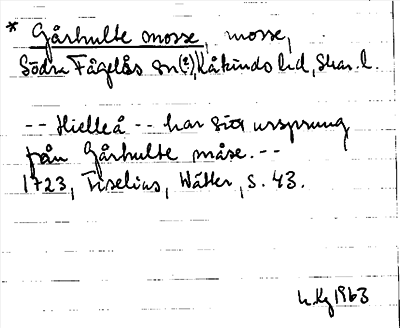 * Gårhulte mosse, mosse,
Södra Fågelås sn(?), Kåkinds hd, Skar. l.
-- Hielleå -- har sitt ursprung
från Gårhulte måse. --
1723, Tiselius, Wätter, s. 43.
1963